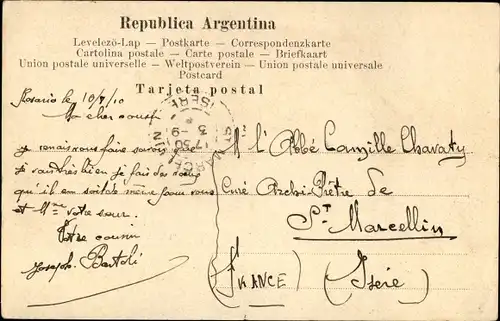 Republica Argentina
Levelezö-Lap — Postkarte — Correspondenzkarte
Cartolina postale — Carte postale — Briefkaart
Union postale universelle — Weltpostverein — Union postale universale
Postcard
Tarjeta postal
Rosario le 10/8/10
Mon cher cousin
je viens vous faire savoir que
je vais très bien je fais des vœux
qu'il en soit de même pour vous
et Mme votre sœur.
Votre cousin
Joseph Bartoli
ST MARCELLIN
ISERE
17 30
3 - 9
A l'Abbé Camille Chavaty
Curé Archi-Prêtre de
St Marcellin
(France) (Isère)